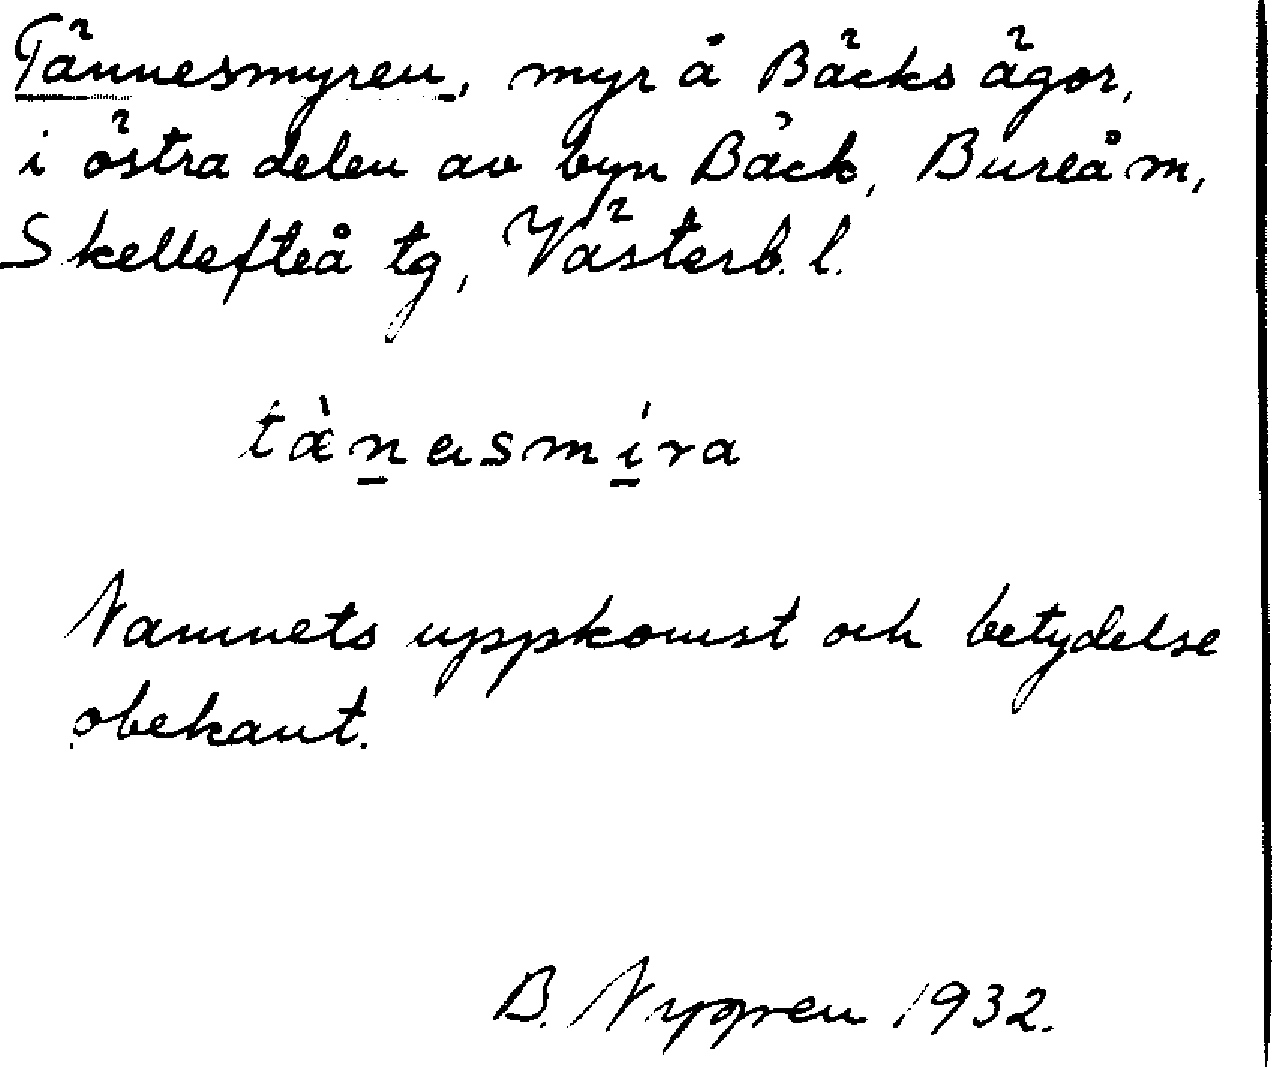 Tännesmyren, myr å Bäcks ägor,
i östra delen av byn Bäck, Bureå m,
Skellefteå tg, Västerb. l.
tæ̀nasmíra
Namnets uppkomst och betydelse
obekant.
B. Nygren 1932.